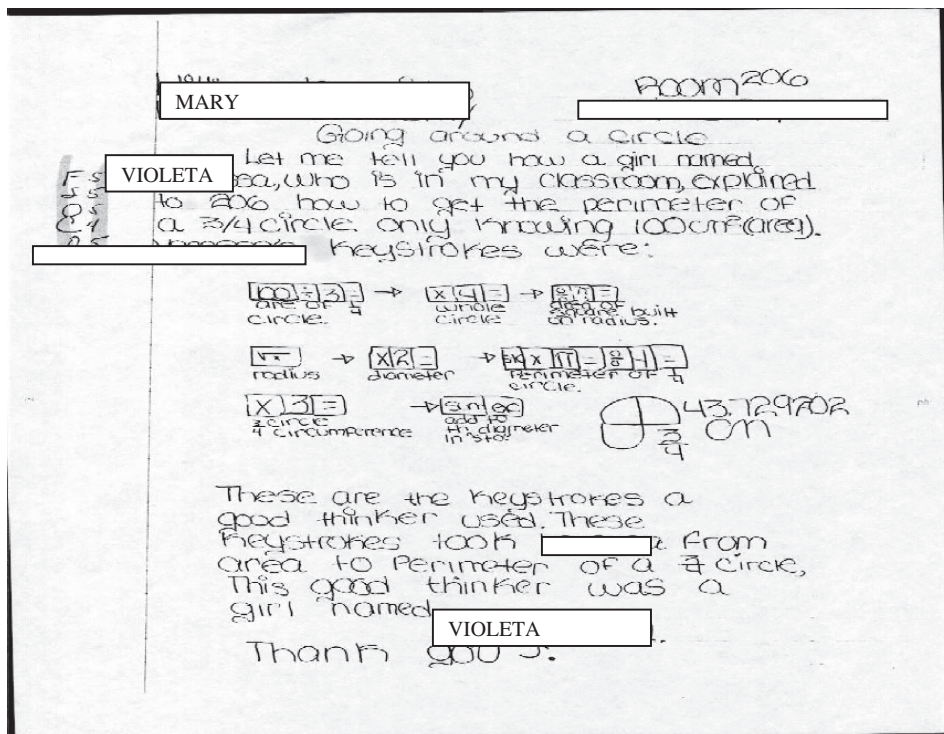 MARY
Room 206
Going around a circle
VIOLETA
Let me tell you how a girl named
who is in my classroom, explained
to 206 how to get the perimeter of
a 3/4 circle. only knowing 100cm²(area).
keystrokes were:
100 ÷ 3 = → x 4 = → ÷ π =
are of 1/4 circle. whole circle area of square built on radius.
√x → x 2 = → x π = ÷ 4 =
radius diameter Perimeter of 1/4 circle.
x 3 = →
3/4 circle circumference add to the diameter in sto.
3/4 43.729702 cm
These are the keystrokes a
good thinker used. These
keystrokes took from
area to Perimeter of a circle,
This good thinker was a
girl named
VIOLETA
Thank you